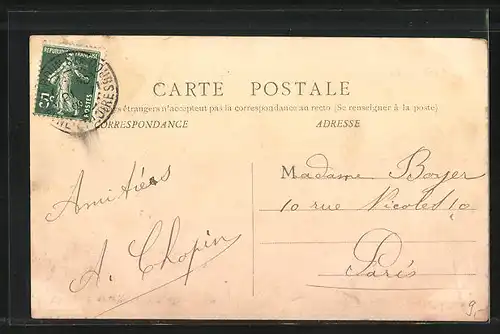 REPUBLIQUE FRANÇAISE
5c
POSTES
CARTE POSTALE
étrangers n'acceptent pas la correspondance au recto (Se renseigner à la poste)
CORRESPONDANCE
ADRESSE
Amitiés
A. Chopin
Madame Boyer
10 rue Nicolet 10
Paris
9,-